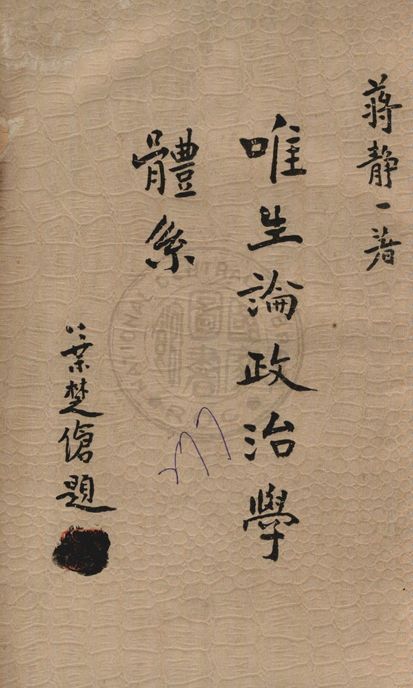 蔣静一著
唯生論政治學
體系
葉楚傖題